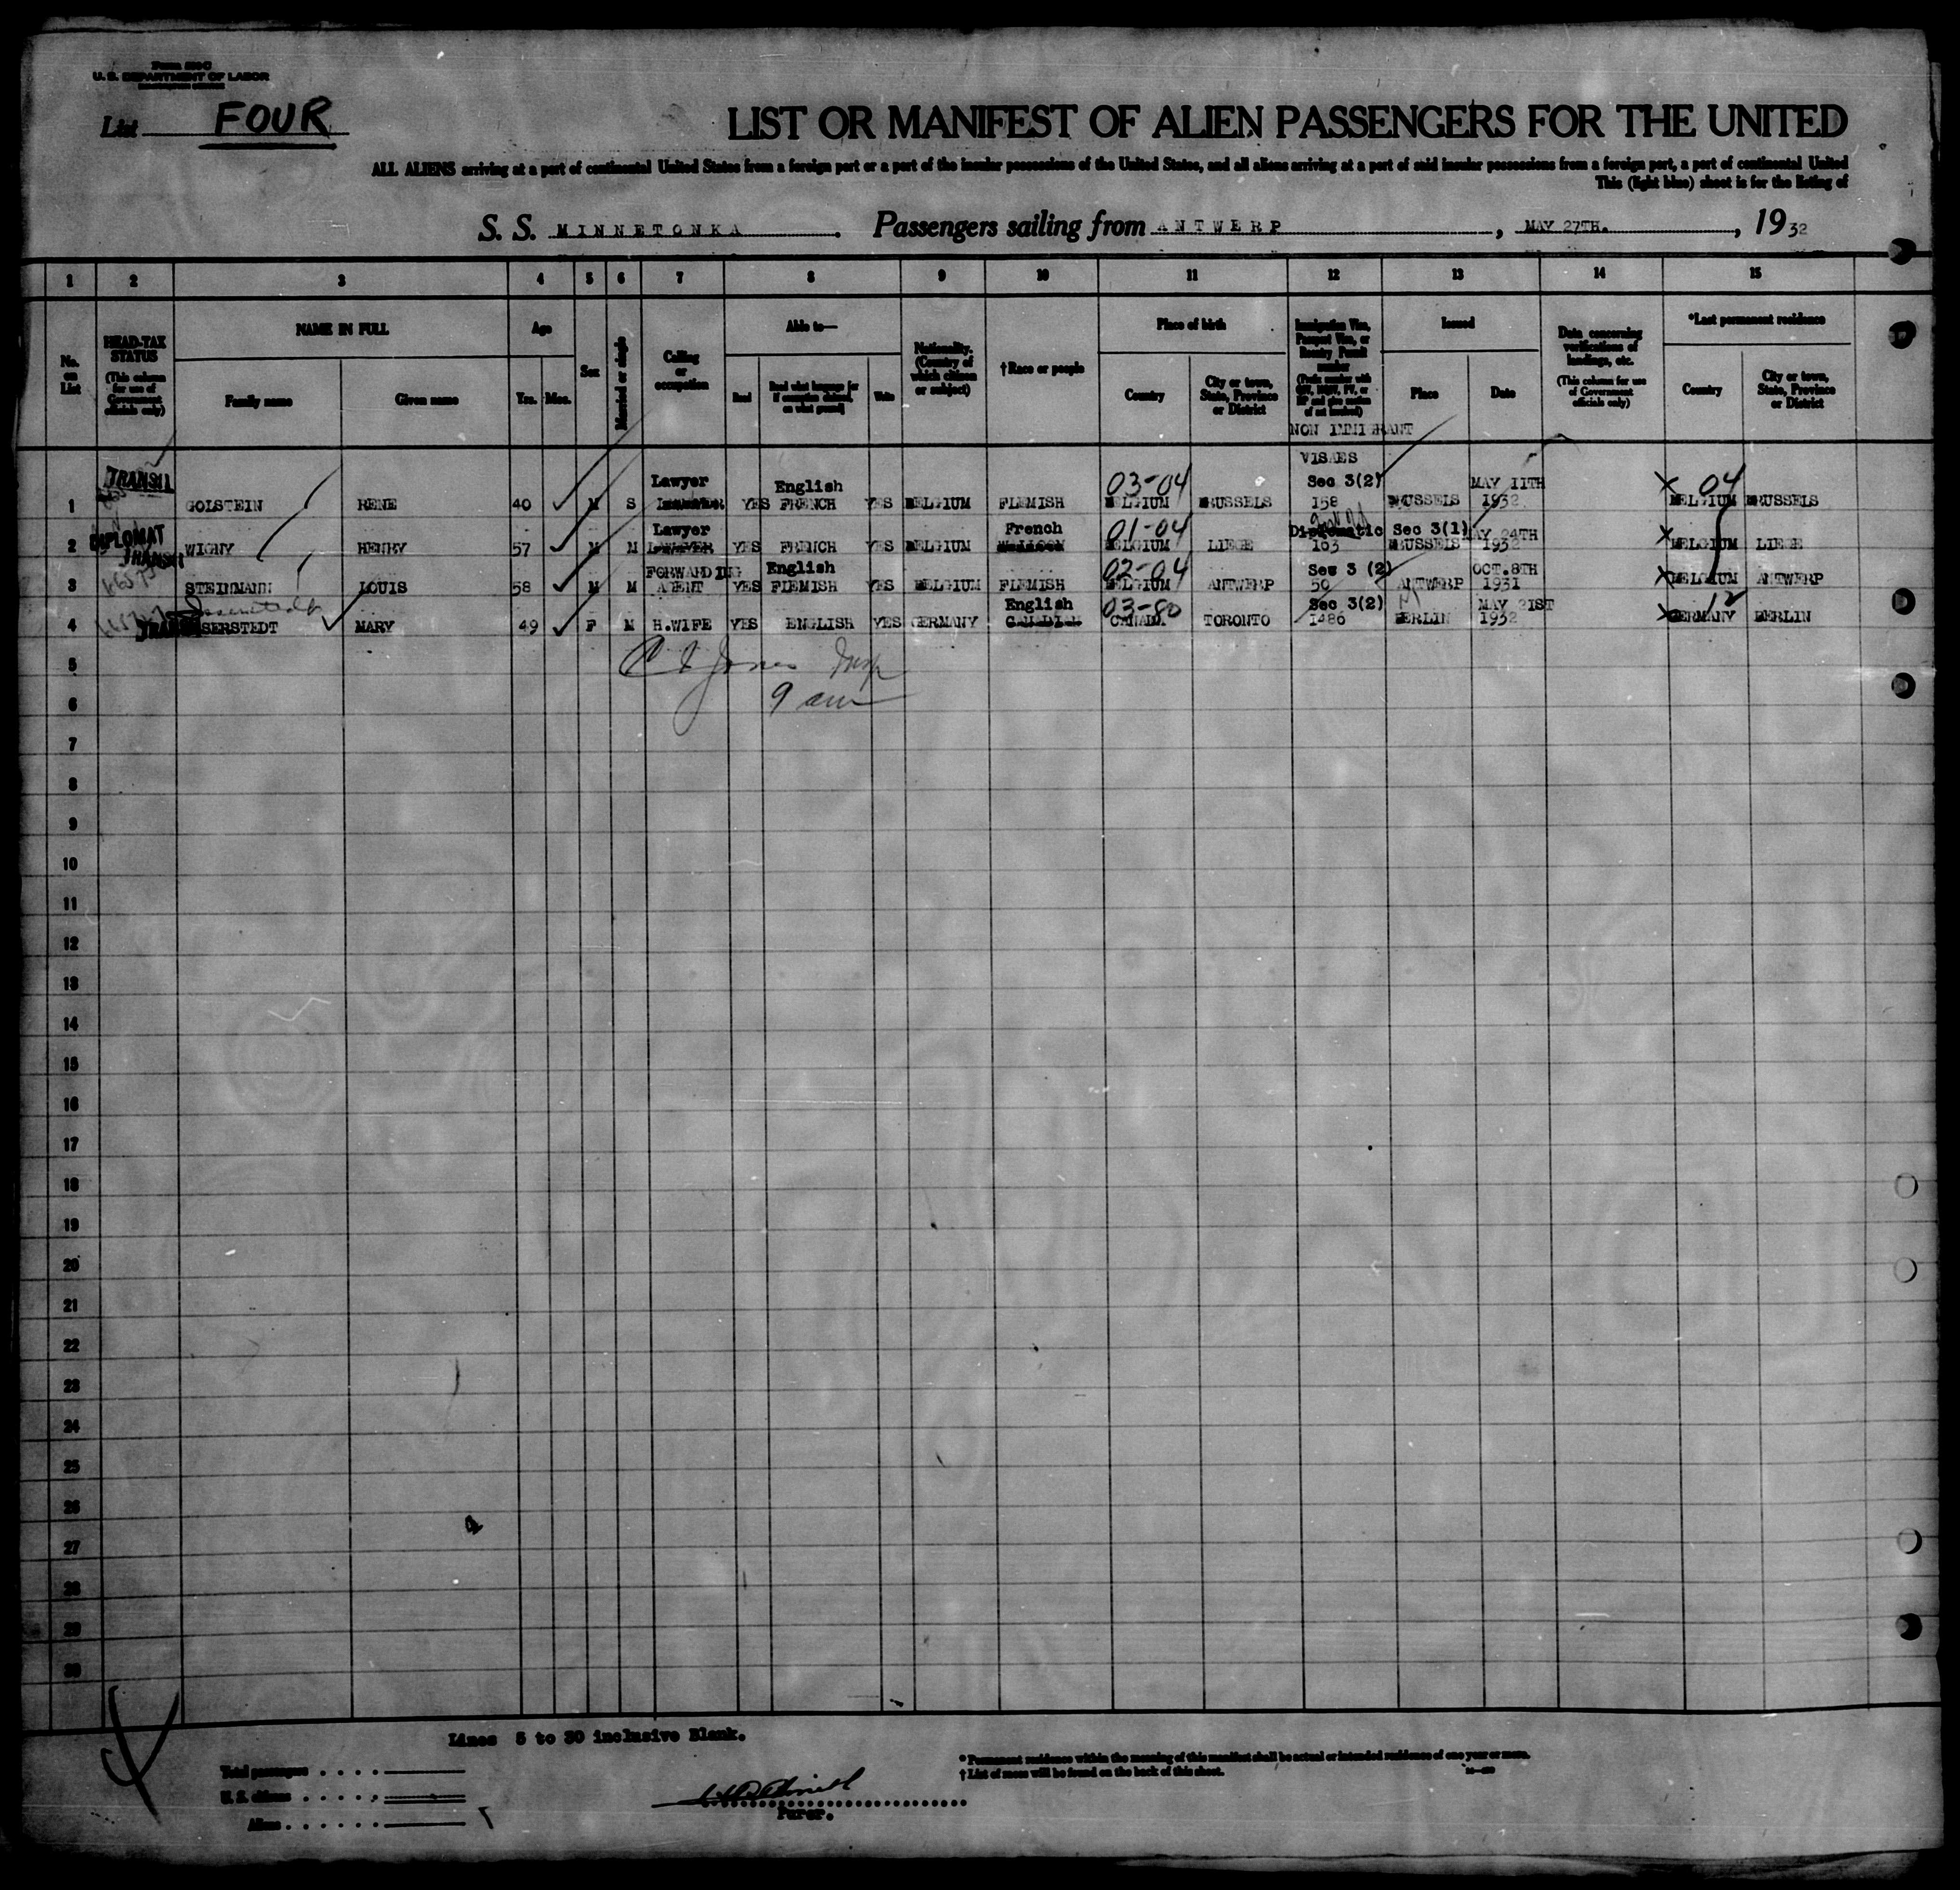 Form 500
U. S. DEPARTMENT OF LABOR
List FOUR
LIST OR MANIFEST OF ALIEN PASSENGERS FOR THE UNITED
ALL ALIENS arriving at a port of continental United States from a foreign port or a port of the insular possessions of the United States, and all aliens arriving at a port of said insular possessions from a foreign port, a port of continental United
This (light blue) sheet is for the listing of
S. S. MINNETONKA. Passengers sailing from ANTWERP, MAY 27TH., 1932
1 2 3 4 5 6 7 8 9 10 11 12 13 14 15
No. on List
HEAD-TAX STATUS
(This column for use of Government officials only)
NAME IN FULL
Family name Given name
Age
Yrs. Mos.
Sex
Married or single
Calling or occupation
Able to—
Read Read what language (or if exemption claimed, on what ground) Write
Nationality. (Country of which citizen or subject)
†Race or people
Place of birth
Country City or town, State, Province or District
Immigration Visa, Passport Visa, or Reentry Permit number
NON IMMIGRANT
VISAES
Issued
Place Date
Data concerning verifications of landings, etc.
(This column for use of Government officials only)
*Last permanent residence
Country City or town, State, Province or District
TRANSIT Lawyer English 03-04 Sec 3(2) MAY 11TH 04
1 GOLSTEIN RENE 40 M S YES FRENCH YES BELGIUM FLEMISH BELGIUM BRUSSELS 158 BRUSSELS 1932 BELGIUM BRUSSELS
DIPLOMAT Lawyer French 01-04 Diplomatic Sec 3(1) MAY 24TH
2 TRANSIT WIGNY HENRY 57 M M LAWYER YES FRENCH YES BELGIUM BELGIUM LIEGE 163 BRUSSELS 1932 BELGIUM LIEGE
FORWARDING English 02-04 Sec 3 (2) OCT.8TH
3 STEINMANN LOUIS 58 M M AGENT YES FLEMISH YES BELGIUM FLEMISH BELGIUM ANTWERP 50 ANTWERP 1931 BELGIUM ANTWERP
English 03-80 Sec 3(2) MAY 21ST 12
4 TRANSIT SERSTEDT MARY 49 F M H.WIFE YES ENGLISH YES GERMANY CANADIAN CANADA TORONTO 1486 BERLIN 1932 GERMANY BERLIN
5 Jones Insp
6 9 am
7
8
9
10
11
12
13
14
15
16
17
18
19
20
21
22
23
24
25
26
27
28
29
30
Lines 5 to 30 inclusive Blank.
Total passengers
U. S. citizens
Aliens
Purser.
* Permanent residence within the meaning of this manifest shall be actual or intended residence of one year or more.
† List of races will be found on the back of this sheet.